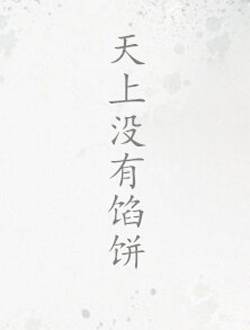 天上没有馅饼